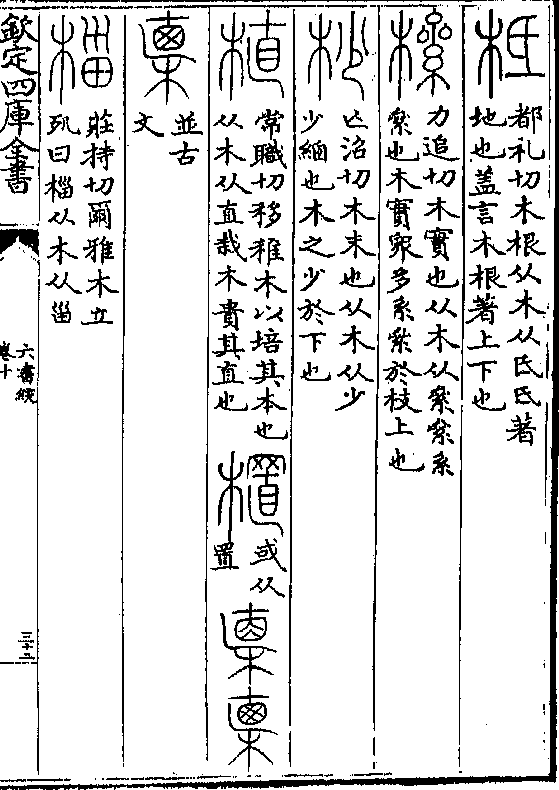 柢
都礼切木根从木从氐氐著
地也盖言木根著上下也
欙
力追切木實也从木从絫絫系
絫也木實衆多系絫於枝上也
杪
亡沼切木末也从木从少
少緬也木之少於下也
植
常職切移稚木以培其本也
从木从直栽木貴其直也
櫃
或从
置
㮚㮚
㮚
並古
文
椔
莊持切爾雅木立
死曰椔从木从甾
欽定四庫全書
六書統
卷十
三十二